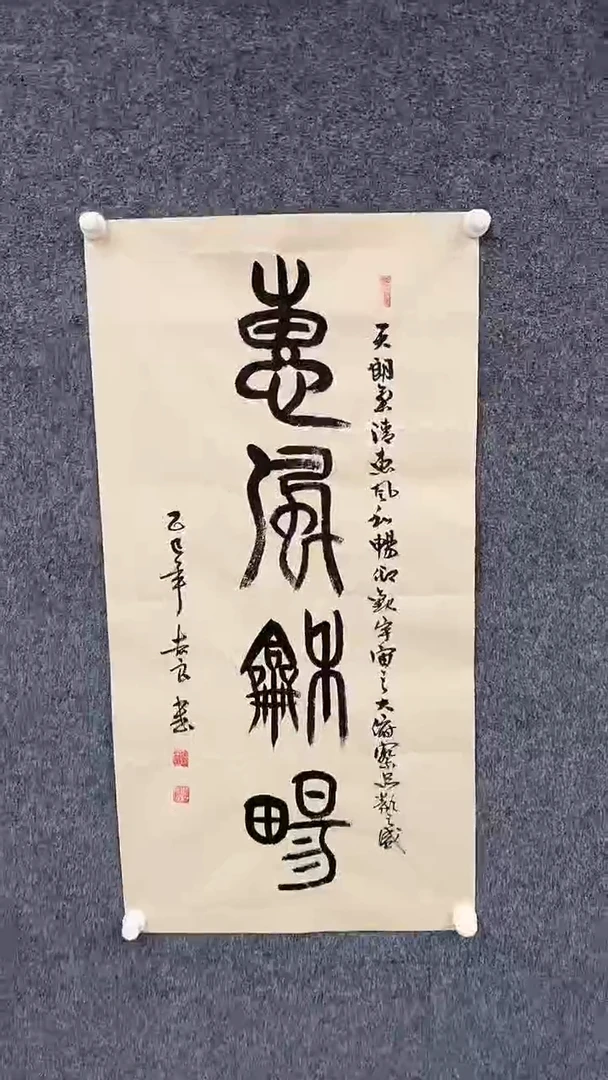 天朗氣清惠風和暢仰觀宇宙之大俯察品類之盛
惠風龢畼
乙巳年 書